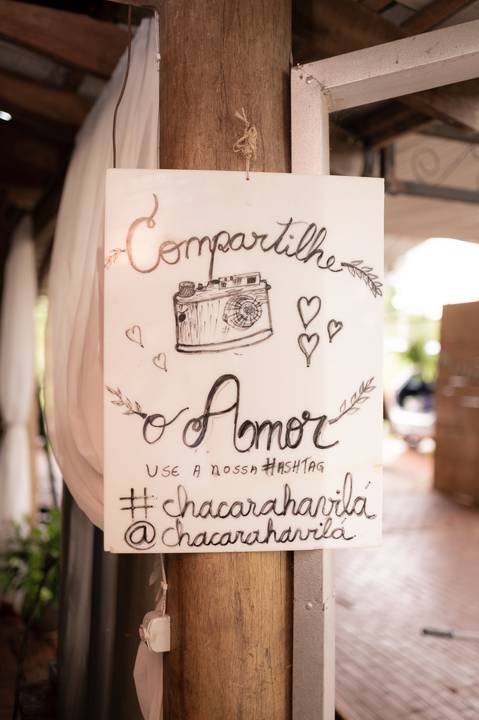 Compartilhe
o Amor
USE A NOSSA #ASHTAG
#chacarahavilá
@chacarahavilá